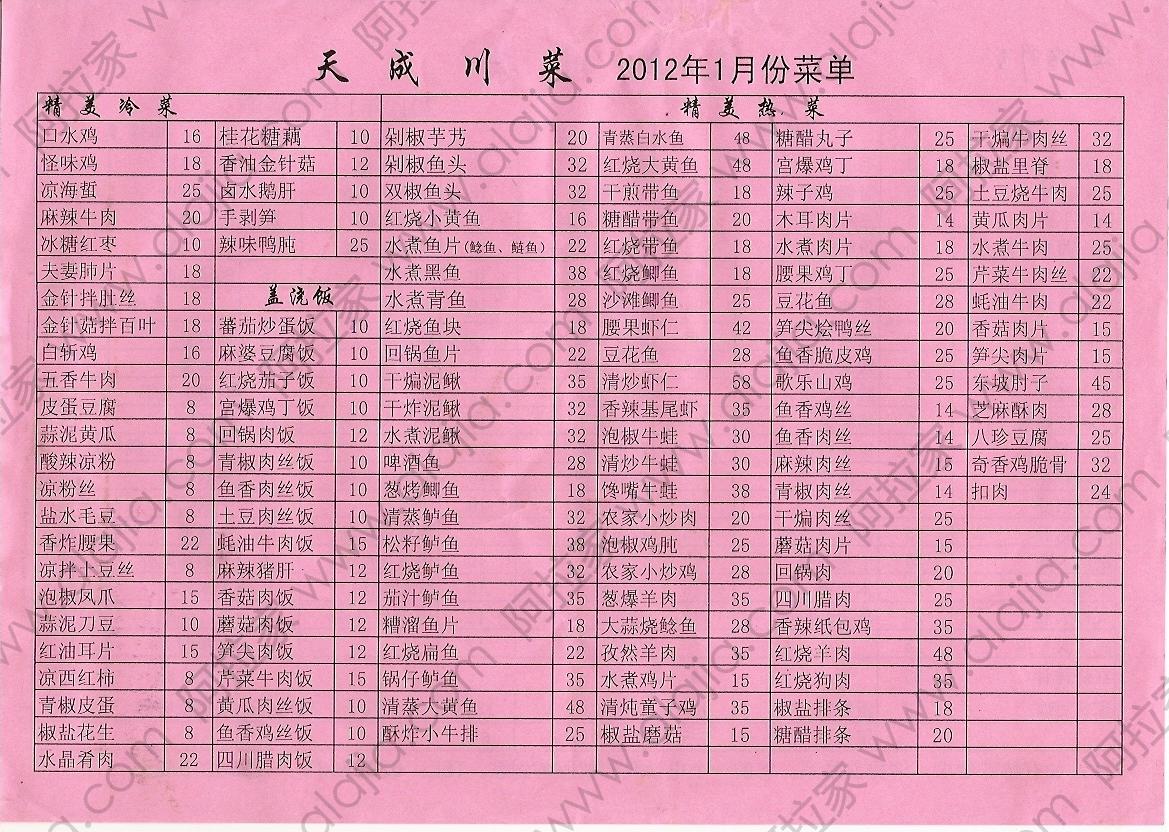 天成川菜 2012年1月份菜单
精美冷菜 精美热菜
口水鸡 16 桂花糖藕 10 剁椒芋艿 20 青蒸白水鱼 48 糖醋丸子 25 干煸牛肉丝 32
怪味鸡 18 香油金针菇 12 剁椒鱼头 32 红烧大黄鱼 48 宫爆鸡丁 18 椒盐里脊 18
凉海蜇 25 卤水鹅肝 10 双椒鱼头 32 干煎带鱼 18 辣子鸡 25 土豆烧牛肉 25
麻辣牛肉 20 手剥笋 10 红烧小黄鱼 16 糖醋带鱼 20 木耳肉片 14 黄瓜肉片 14
冰糖红枣 10 辣味鸭肫 25 水煮鱼片(鲶鱼、鲢鱼) 22 红烧带鱼 18 水煮肉片 18 水煮牛肉 25
夫妻肺片 18 水煮黑鱼 38 红烧鲫鱼 18 腰果鸡丁 25 芹菜牛肉丝 22
金针拌肚丝 18 盖浇饭 水煮青鱼 28 沙滩鲫鱼 25 豆花鱼 28 蚝油牛肉 22
金针菇拌百叶 18 蕃茄炒蛋饭 10 红烧鱼块 18 腰果虾仁 42 笋尖烩鸭丝 20 香菇肉片 15
白斩鸡 16 麻婆豆腐饭 10 回锅鱼片 22 豆花鱼 28 鱼香脆皮鸡 25 笋尖肉片 15
五香牛肉 20 红烧茄子饭 10 干煸泥鳅 35 清炒虾仁 58 歌乐山鸡 25 东坡肘子 45
皮蛋豆腐 8 宫爆鸡丁饭 10 干炸泥鳅 32 香辣基尾虾 35 鱼香鸡丝 14 芝麻酥肉 28
蒜泥黄瓜 8 回锅肉饭 12 水煮泥鳅 32 泡椒牛蛙 30 鱼香肉丝 14 八珍豆腐 25
酸辣凉粉 8 青椒肉丝饭 10 啤酒鱼 28 清炒牛蛙 30 麻辣肉丝 15 奇香鸡脆骨 32
凉粉丝 8 鱼香肉丝饭 10 葱烤鲫鱼 18 馋嘴牛蛙 38 青椒肉丝 14 扣肉 24
盐水毛豆 8 土豆肉丝饭 10 清蒸鲈鱼 32 农家小炒肉 20 干煸肉丝 25
香炸腰果 22 蚝油牛肉饭 15 松籽鲈鱼 38 泡椒鸡肫 25 蘑菇肉片 15
凉拌土豆丝 8 麻辣猪肝 12 红烧鲈鱼 32 农家小炒鸡 28 回锅肉 20
泡椒凤爪 15 香菇肉饭 12 茄汁鲈鱼 35 葱爆羊肉 35 四川腊肉 25
蒜泥刀豆 10 蘑菇肉饭 12 糟溜鱼片 18 大蒜烧鲶鱼 28 香辣纸包鸡 35
红油耳片 15 笋尖肉饭 12 红烧扁鱼 22 孜然羊肉 35 红烧羊肉 48
凉西红柿 8 芹菜牛肉饭 15 锅仔鲈鱼 35 水煮鸡片 15 红烧狗肉 35
青椒皮蛋 8 黄瓜肉丝饭 10 清蒸大黄鱼 48 清炖童子鸡 35 椒盐排条 18
椒盐花生 8 鱼香鸡丝饭 10 酥炸小牛排 25 椒盐磨菇 15 糖醋排条 20
水晶肴肉 22 四川腊肉饭 12
阿拉家 www.alajia.com